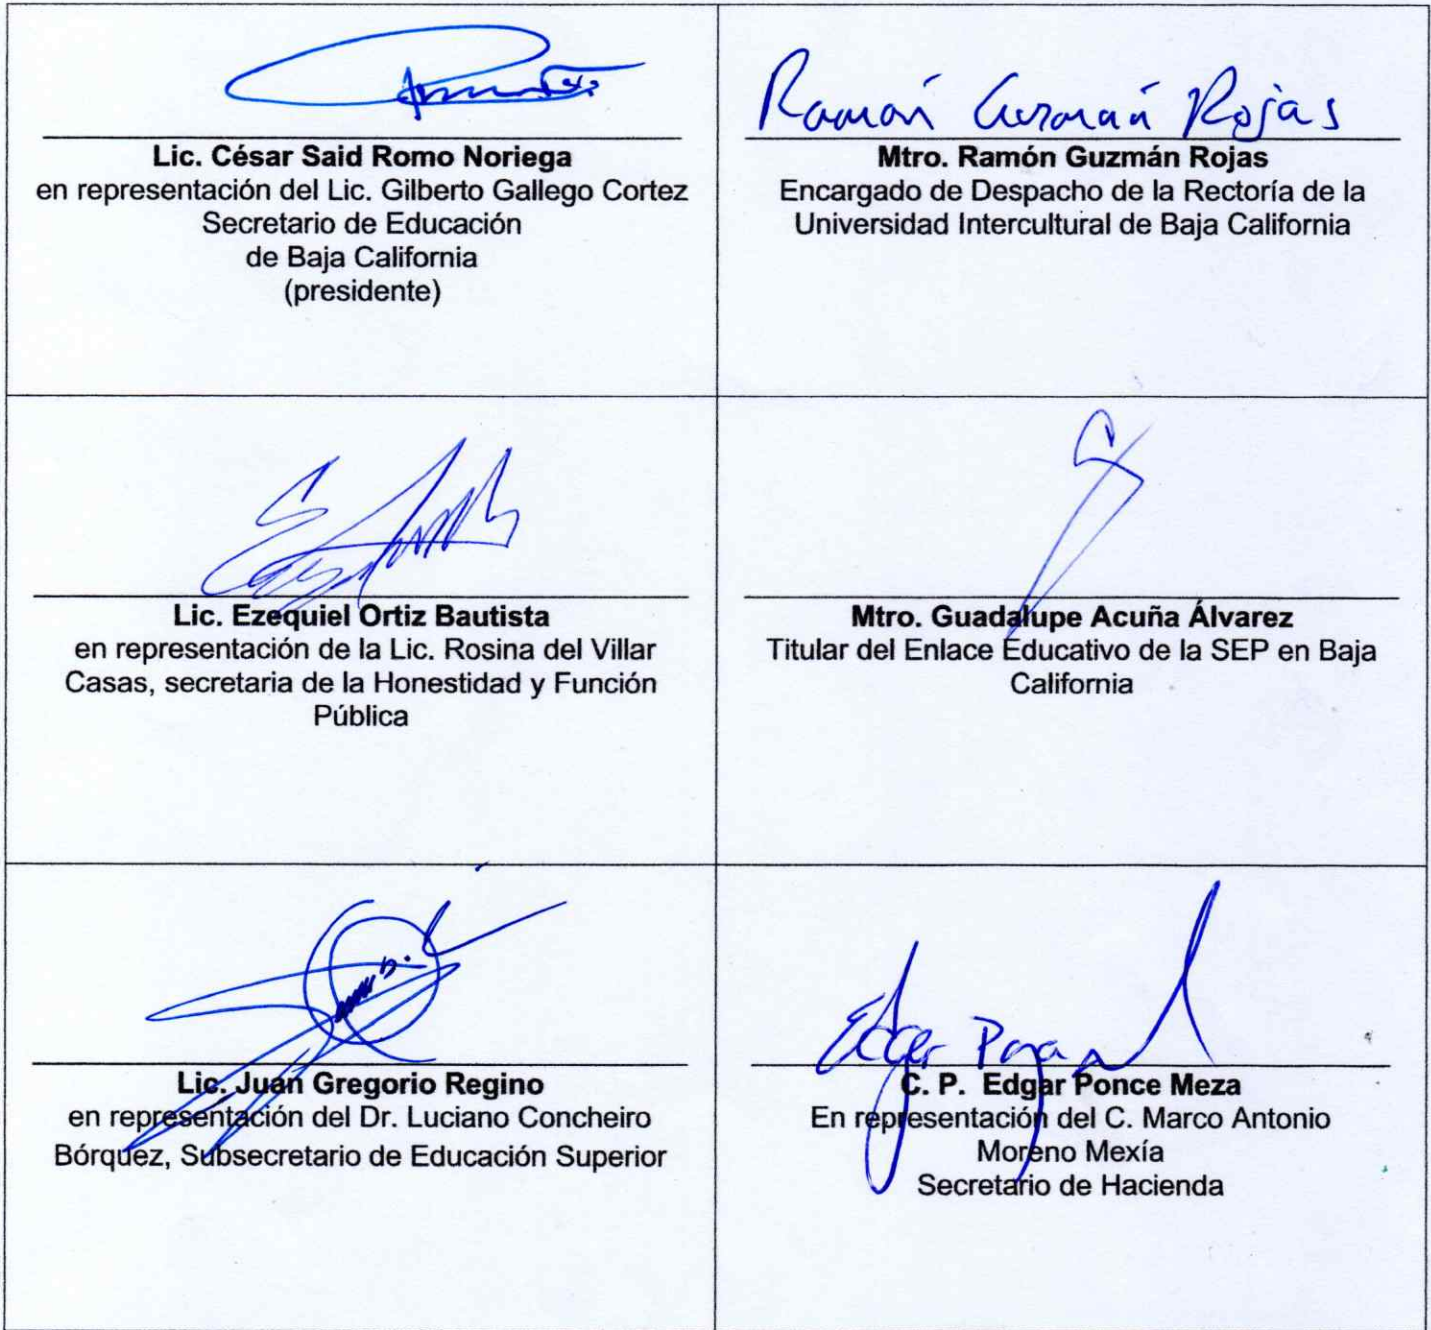 Lic. César Said Romo Noriega
en representación del Lic. Gilberto Gallego Cortez
Secretario de Educación
de Baja California
(presidente)
Ramón Guzmán Rojas
Mtro. Ramón Guzmán Rojas
Encargado de Despacho de la Rectoría de la
Universidad Intercultural de Baja California
Lic. Ezequiel Ortiz Bautista
en representación de la Lic. Rosina del Villar
Casas, secretaria de la Honestidad y Función
Pública
Mtro. Guadalupe Acuña Álvarez
Titular del Enlace Educativo de la SEP en Baja
California
Lic. Juan Gregorio Regino
en representación del Dr. Luciano Concheiro
Bórquez, Subsecretario de Educación Superior
Edgar
C. P. Edgar Ponce Meza
En representación del C. Marco Antonio
Moreno Mexía
Secretario de Hacienda